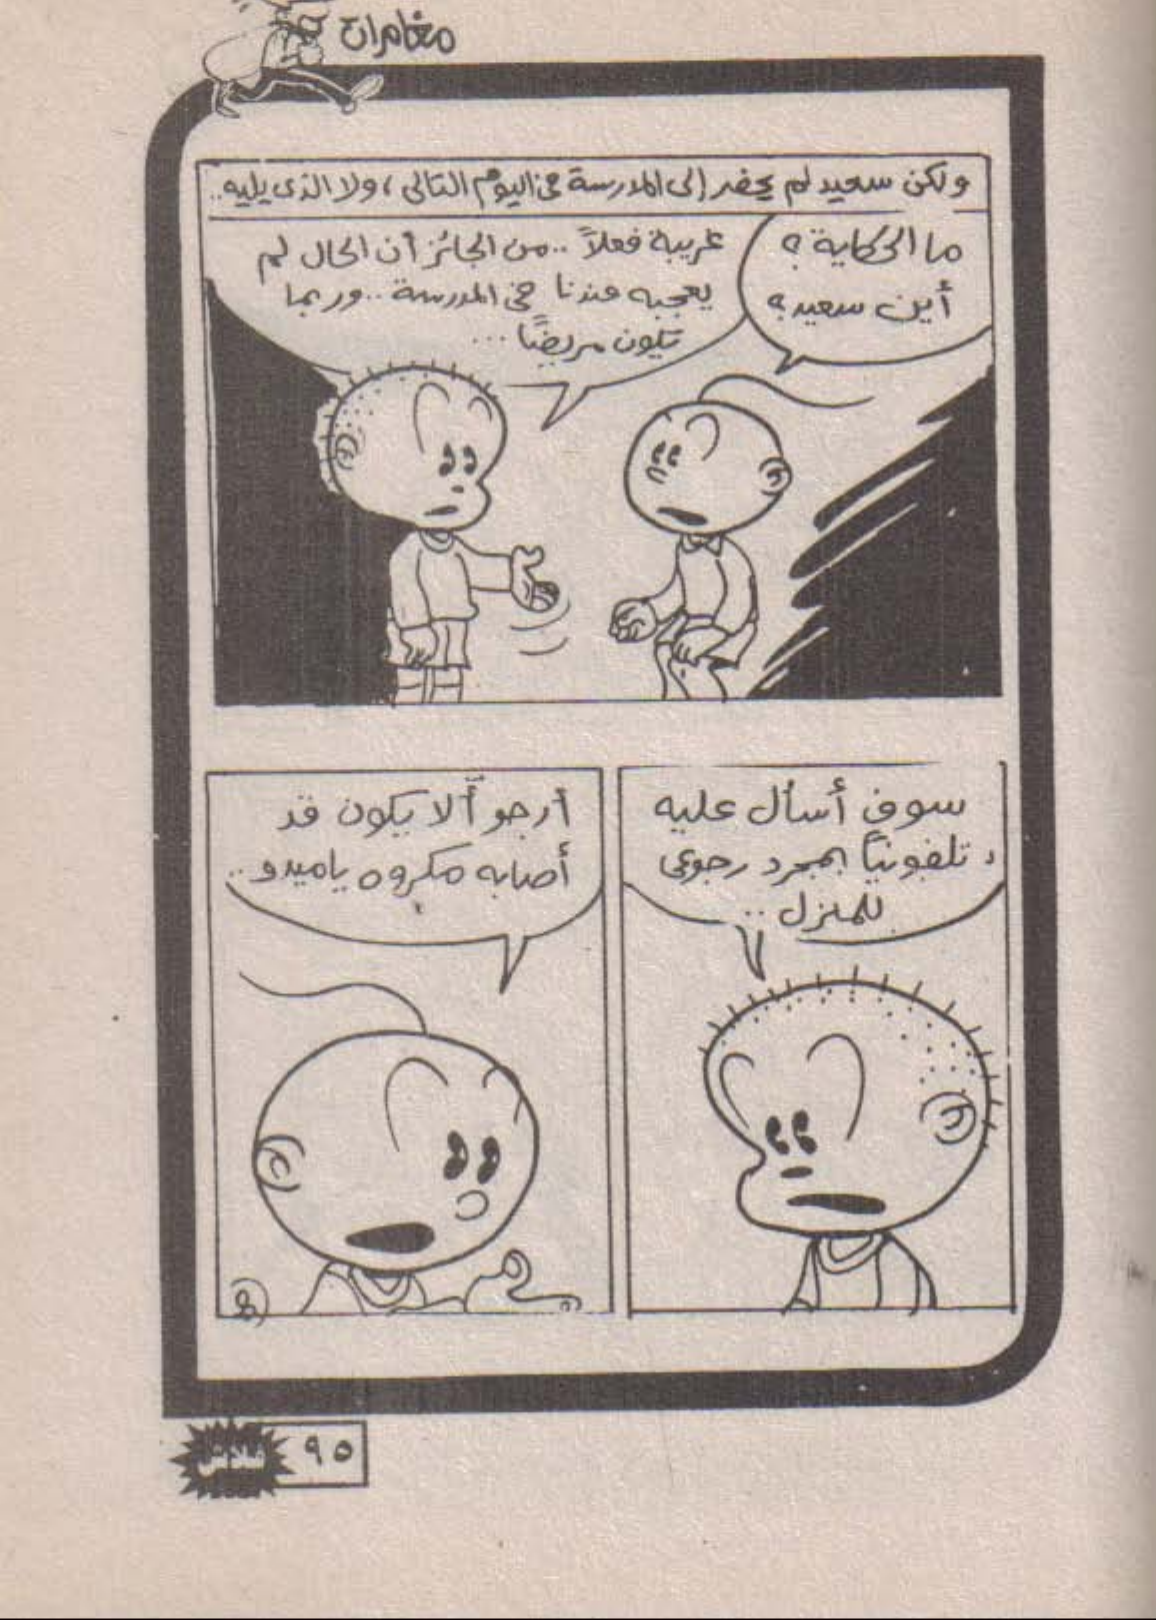 مغامرات
ولكن سعيد لم يحضر إلى المدرسة فى اليوم التالى، ولا الذى يليه..
ما الحكاية؟
أين سعيد؟
غريبة فعلاً.. من الجائز أن الحال لم
يعجبه عندنا فى المدرسة.. وربما
يكون مريضًا...
سوف أسأل عليه
تلفونيًا بمجرد رجوعى
للمنزل..
أرجو ألا يكون قد
أصابه مكروه ياميدو..
٩٥
فلاش